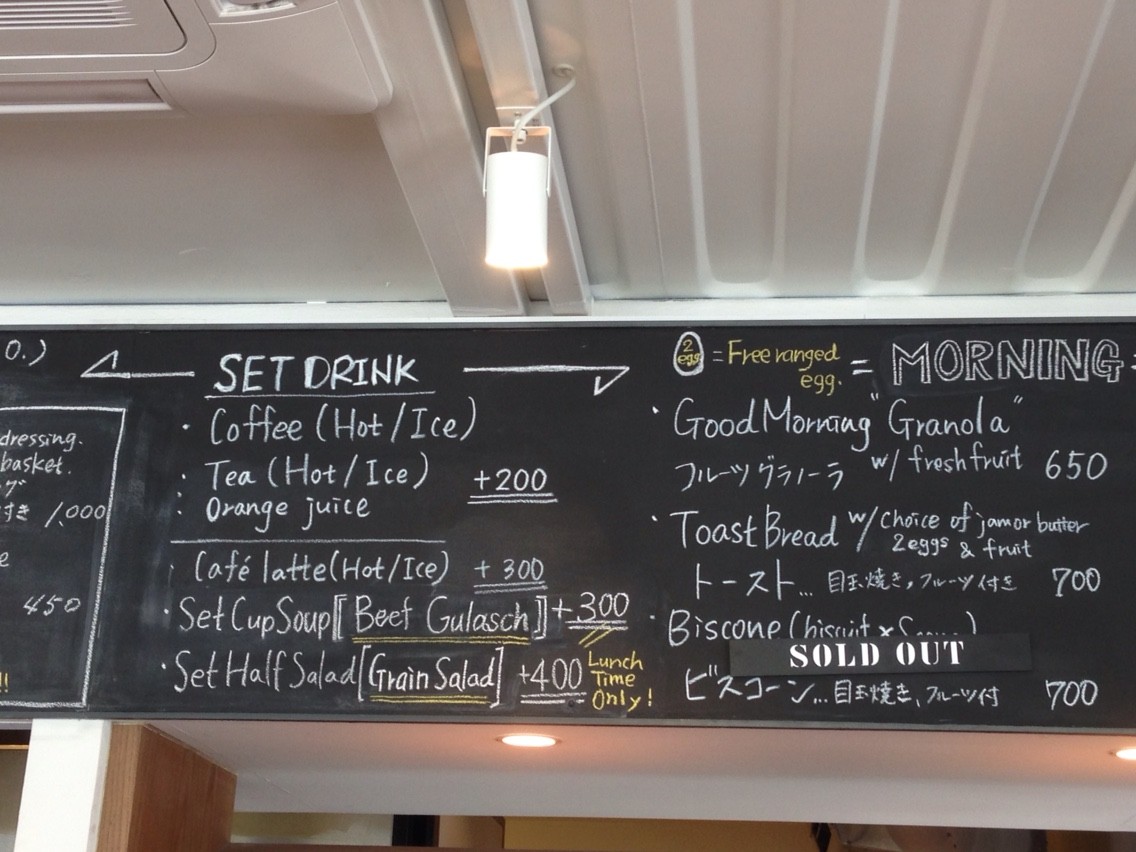 0.)
dressing.
basket.
グ
付き 1,000
e
450
!!
SET DRINK
・Coffee (Hot/Ice)
・Tea (Hot/Ice)
+200
・Orange juice
・Café latte (Hot/Ice) +300
・Set Cup Soup [Beef Gulasch] +300
・Set Half Salad [Grain Salad] +400
Lunch
Time
Only!
2
egg
= Free ranged
egg.
= MORNING
・Good Morning "Granola"
w/ fresh fruit 650
フルーツグラノーラ
・Toast Bread w/ choice of jam or butter
2eggs & fruit
トースト… 目玉焼き, フルーツ付き 700
・Biscone (biscuit x
SOLD OUT
ビスコーン… 目玉焼き、フルーツ付 700